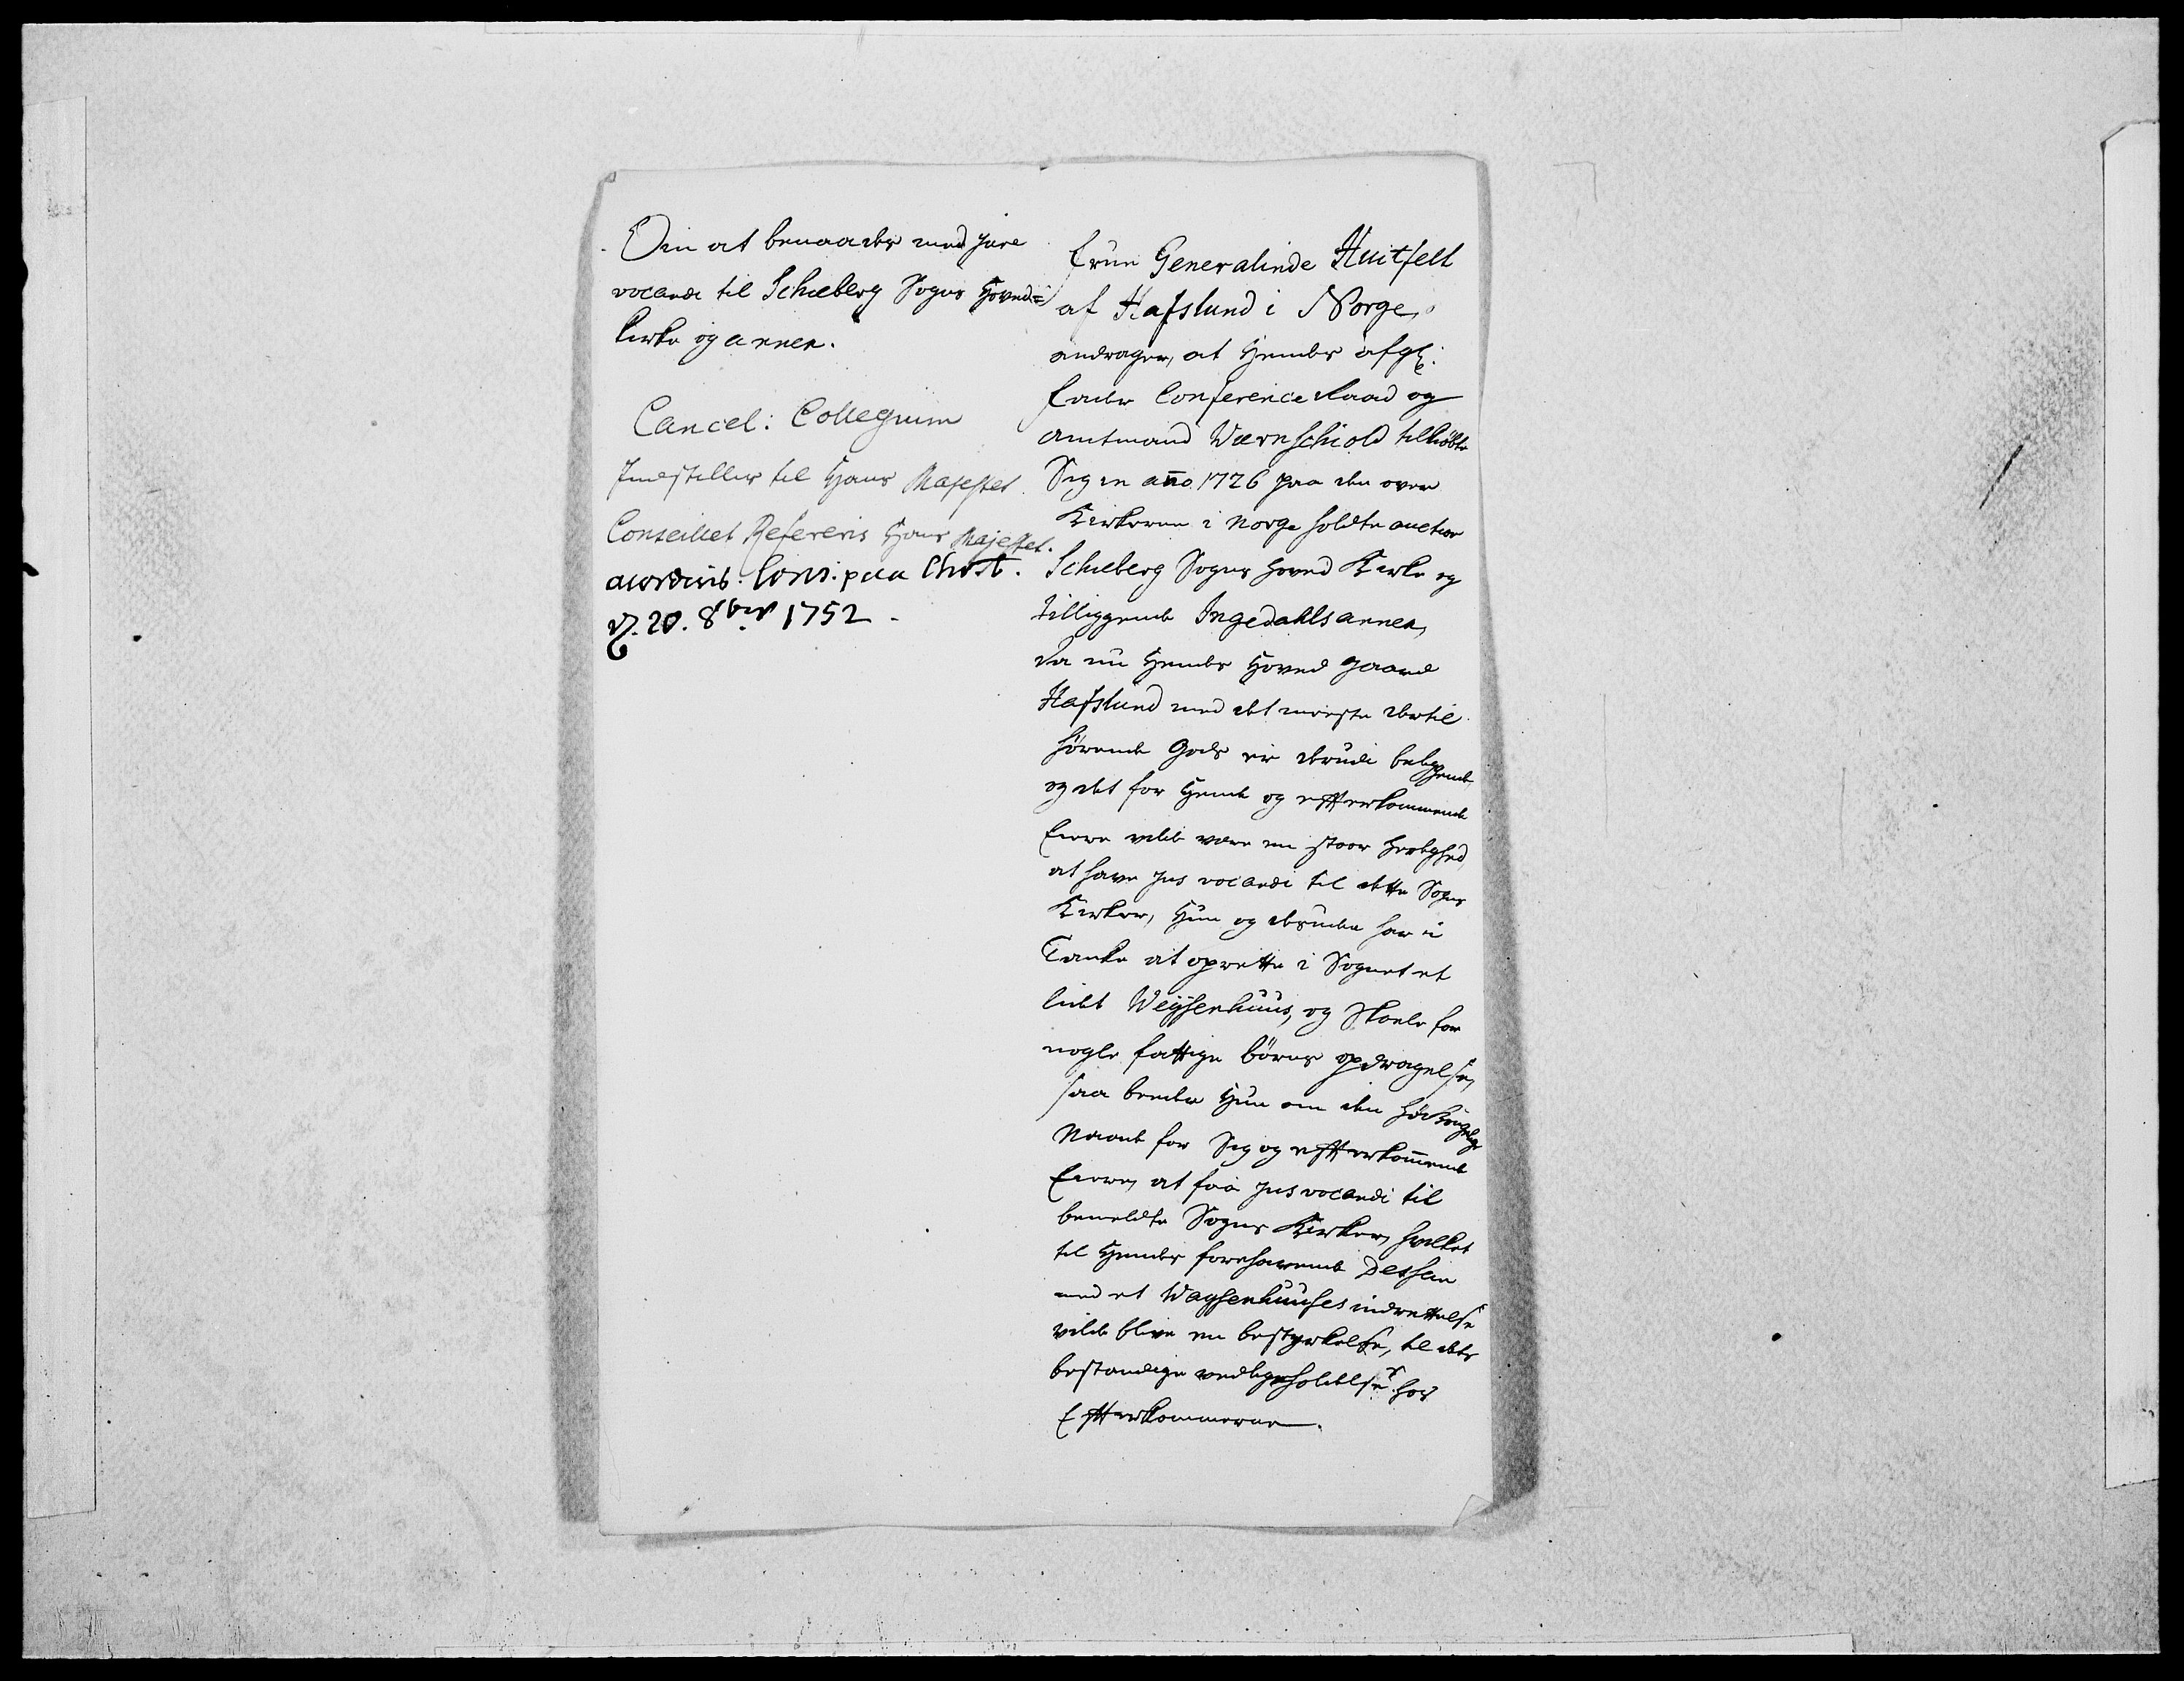 Om at benaades med jure
vocandi til Schieberg Sogns Hoved=
kirke og annex.
Cancel: Collegium
Indstilles til Hans Majestet.
Conseillet Refereris Hans Majestet.
accorderis. Cons. paa Christ.
d. 20. 8bris 1752
Frue Generalinde Huitfelt
af Hafslund i Norge,
andrager, at Hendes afgl:
Fader Conference Raad og
amtmand Wærnschiold tilkiöbte
Sig in año 1726 paa den over
Kirkerne i Norge holdte auction
Schieberg Sogns hoved Kirke og
tilliggende Ingedahls annex,
da nu Hendes Hoved gaard
Hafslund med det meeste dertil
hörende Gods er derudi beliggende,
og det for Hende og efterkommende
Eiere vilde være en stoor herlighed,
at have jus vocandi til dette Sogns
Kirker, Hun og desuden har i
Tanke at oprette i Sognet et
lidet Weysenhuus, og Skoele for
nogle fattige börns opdragelse,
saa beeder Hun om den höy Kongelige
Naade for Sig og efterkom̃ende
Eiere, at faa jus vocandi til
bemeldte Sogns Kirker, hvilket
til Hendes forehavende Dessein
med et Waysenhuuses indrettelse
vilde blive en bestyrkelse, til dets
bestandige vedligeholdelse hos
Efterkommerne.